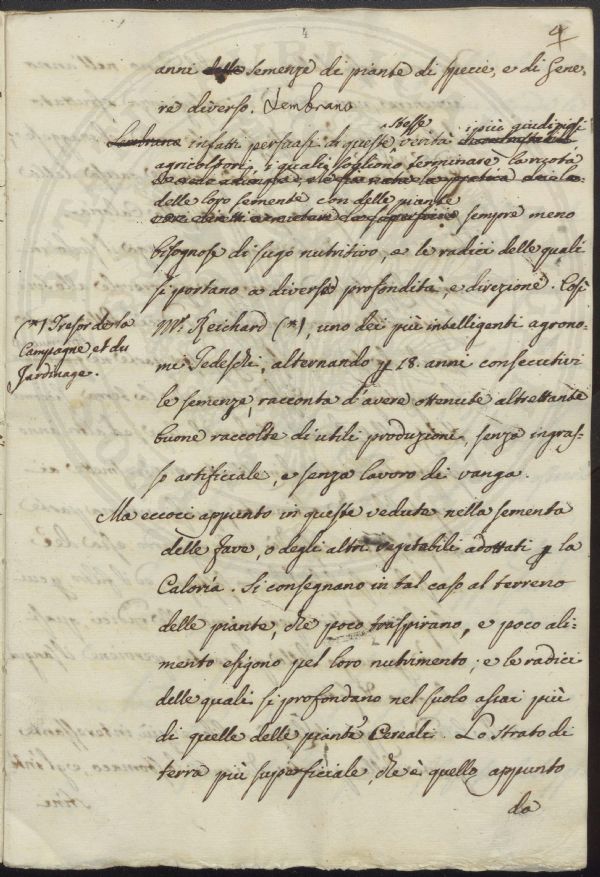 4
4
anni delle semenze di piante di specie, e di Gene,
re diverso. Sembrano
infatti persuasi di queste stesse verità i più giudiziosi
agricoltori, i quali sogliono terminare la ruota
delle loro sementi con delle piante
sempre meno
bisognose di sugo nutritivo, e le radici delle quali
si portano a diversa profondità, e direzione. Così
(*) Tresor de la
Campagne et du
Jardinage.
Mr. Reichard (*), uno dei più intelligenti agrono-
mi Tedeschi, alternando p 18. anni consecutivi
le semenze, racconta d'avere ottenute altrettante
buone raccolte di utili produzioni, senza ingras-
so artificiale, e senza lavoro di vanga.
Ma eccoci appunto in queste vedute nella sementa
delle fave, o degli altri vegetabili adottati p la
Caloria. Si consegnano in tal caso al terreno
delle piante, che poco traspirano, e poco ali-
mento esigono pel loro nutrimento; e le radici
delle quali si profondano nel suolo assai più
di quelle delle piante Cereali. Lo strato di
terra più superficiale, che è quello appunto
da